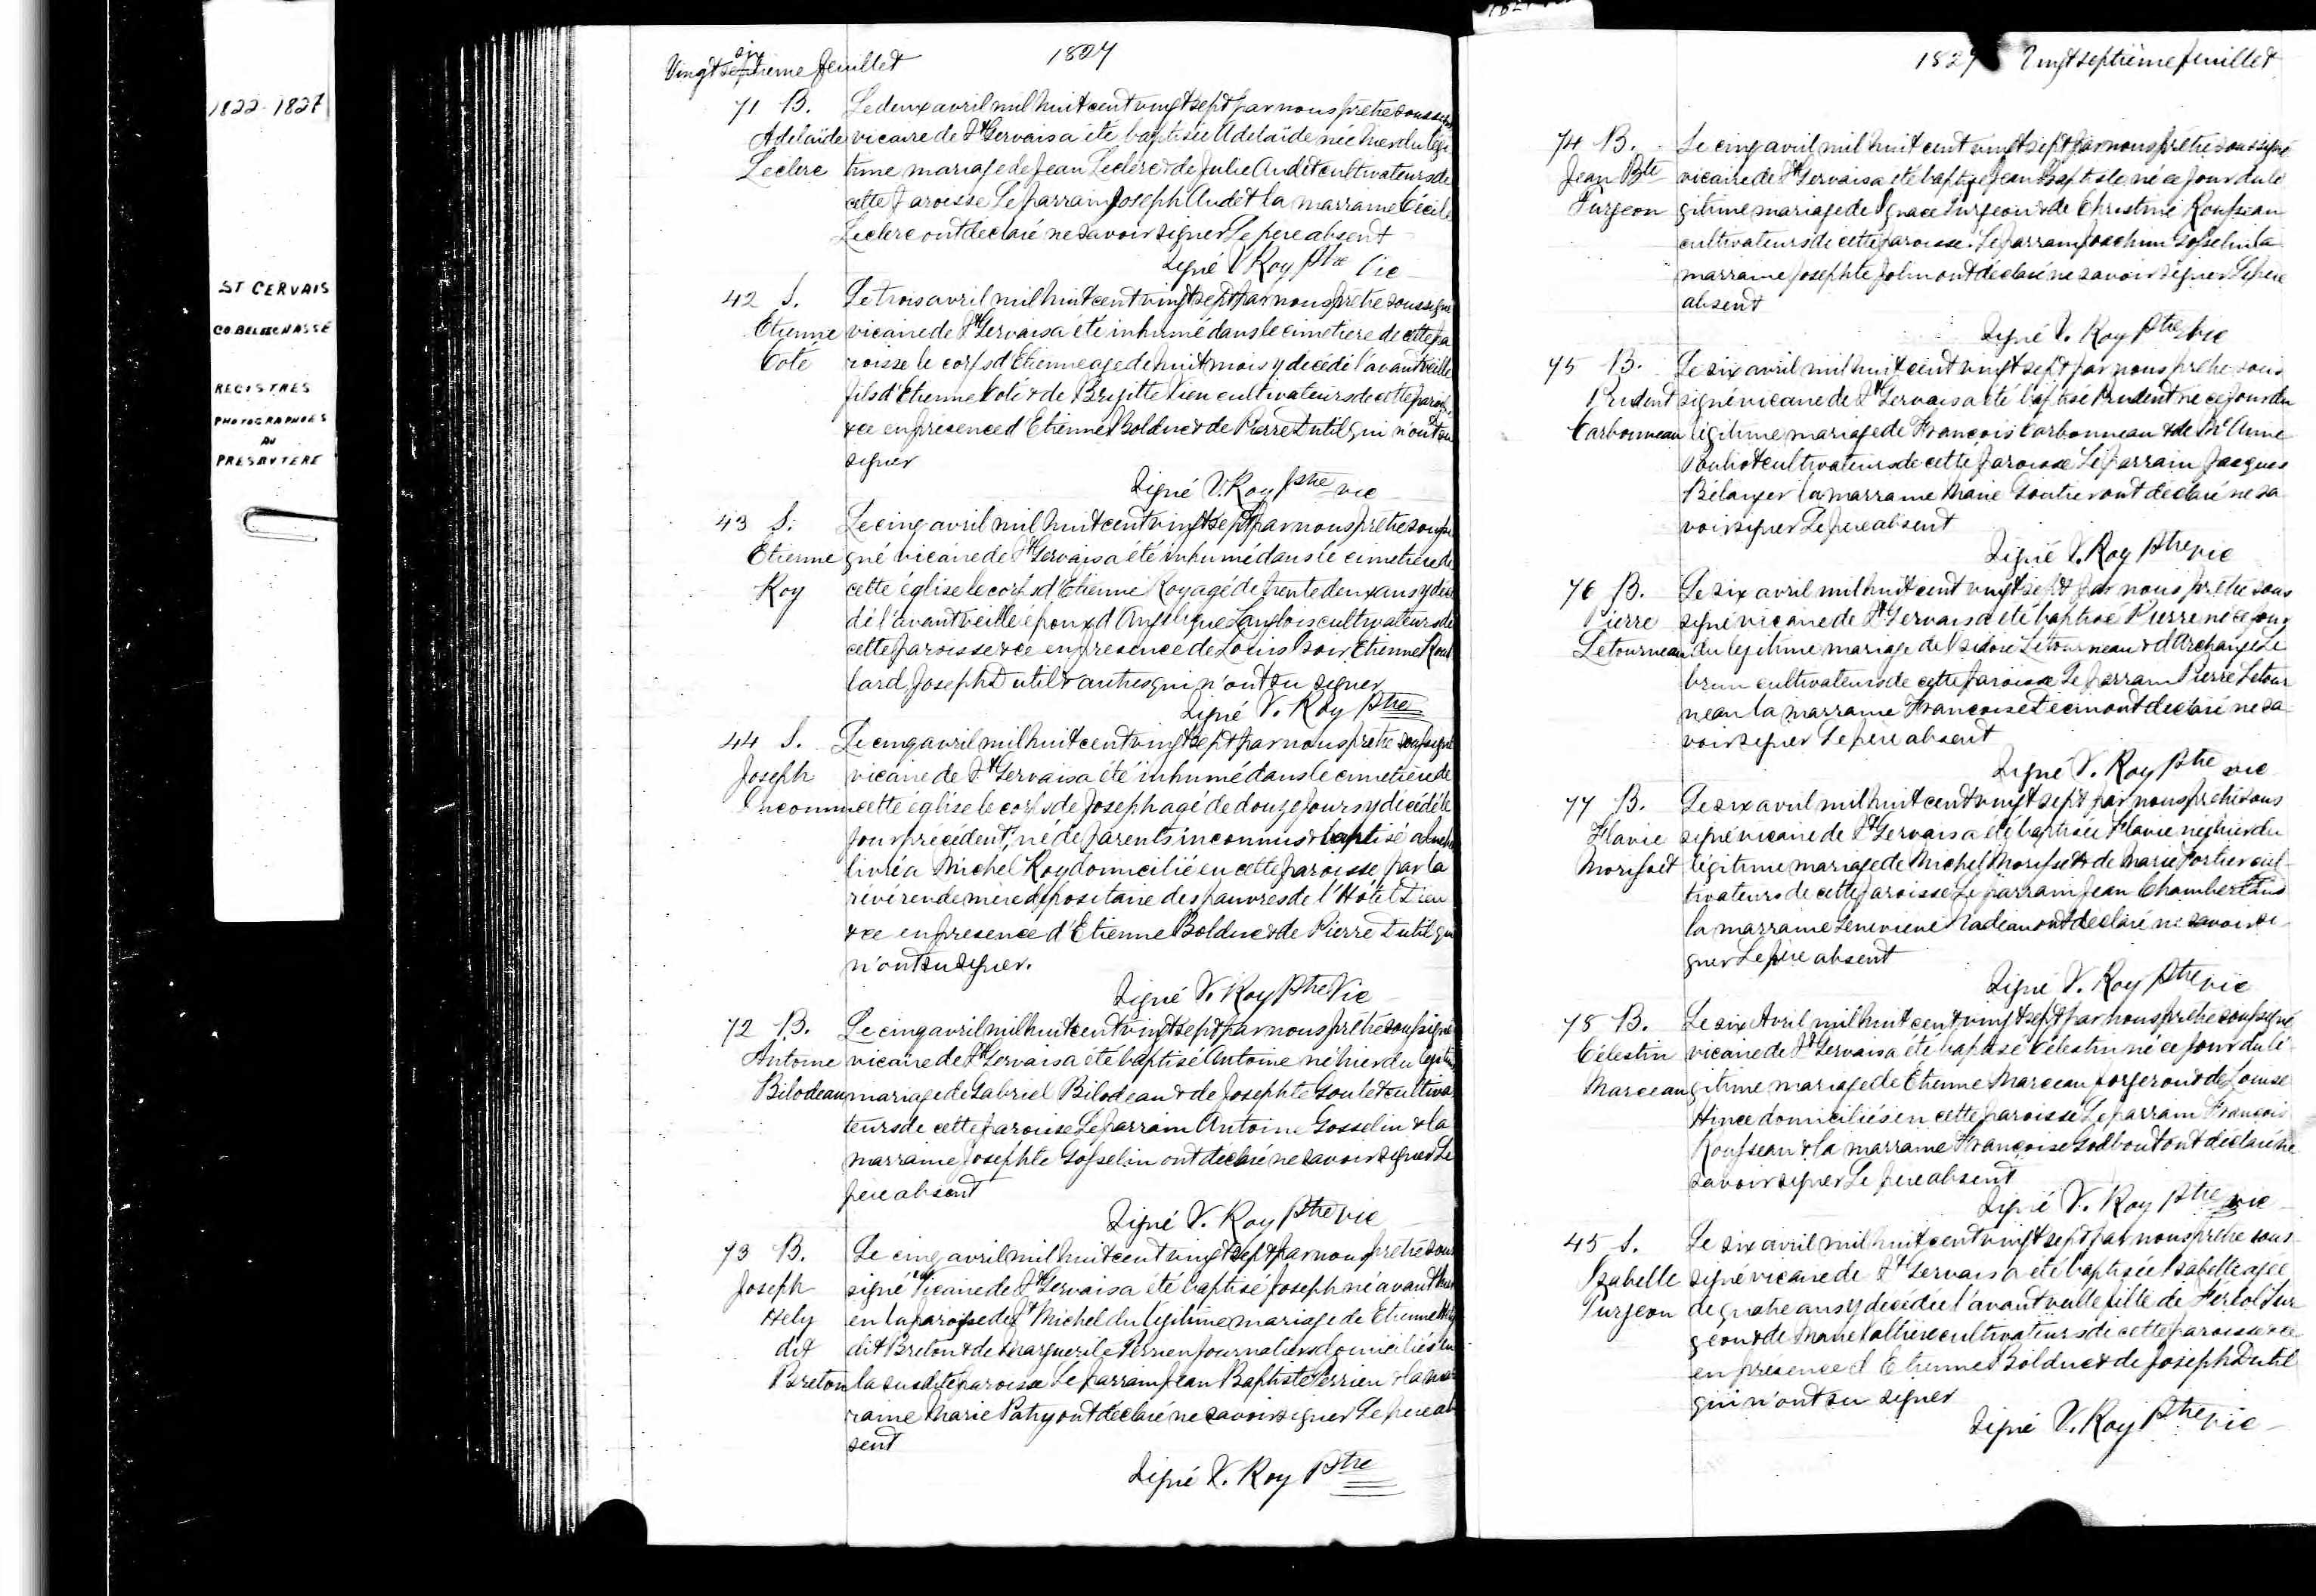 1822-1827
ST GERVAIS
CO BELLECHASSE
REGISTRES
PHOTOGRAPHIÉS
AU
PRESBYTERE
Vingt six septieme feuillet 1827
71 B. Le deux avril mil huit cent vingt sept par nous prêtre soussigné
Adelaïde vicaire de St Gervais a été baptisée Adelaïde née hier du légi
Leclerc time mariage de Jean Leclerc & de Julie Audet cultivateurs de
cette paroisse Le parrain Joseph Audet la marraine Cécile
Leclerc ont declaré ne savoir signer Le pere absent
Signé V Roy Ptre Vic
42 S. Le trois avril mil huit cent vingt sept par nous prêtre soussigné
Etienne vicaire de St Gervais a été inhumé dans le cimetiere de cette pa
Coté roisse le corps d'Etienne age de huit mois y decédé l'avant veille
fils d'Etienne Coté & de Brigitte Vien cultivateurs de cette paroisse
& ce en presence d'Etienne Bolduc & de Pierre Dutil qui n'ont su
signer
Signé V. Roy Ptre vic
43 S. Le cinq avril mil huit cent vingt sept par nous prêtre soussi
Etienne gné vicaire de St Gervais a été inhumé dans le cimetiere de
Roy cette église le corps d'Etienne Roy agé de trente deux ans y décé
dé l'avant veille époux d'Angelique Langlois cultivateurs de
cette paroisse & ce en presence de Louis Isoir Etienne Roul
lard, Joseph Dutil & autres qui n'ont su signer
Signé V. Roy Ptre
44 S. Le cinq avril mil huit cent vingt sept par nous prêtre soussigné
Joseph vicaire de St Gervais a été inhumé dans le cimetiere de
Inconnu cette église le corps de Joseph agé de douze jours y décédé le
jour précédent, né de parents inconnus & baptisé a
livré a Michel Roy domicilié en cette paroisse, par la
révérende mère depositaire des pauvres de l'Hôtel Dieu
& ce en presence d'Etienne Bolduc & de Pierre Dutil qui
n'ont su signer.
Signé V. Roy Ptre Vic
72 B. Le cinq avril mil huit cent vingt sept par nous prêtre soussigné
Antoine vicaire de St Gervais a été baptisé Antoine né hier du legitime
Bilodeau mariage de Gabriel Bilodeau & de Josephte Goulet cultiva
teurs de cette paroisse Le parrain Antoine Gosselin & la
marraine Josephte Gosselin ont déclaré ne savoir signer Le
pere absent
Signé V. Roy Ptre vic
73 B. Le cinq avril mil huit cent vingt sept par nous prêtre sous
Joseph signé Vicaire de St Gervais a été baptisé Joseph né avant hier
Hely en la paroisse de St Michel du légitime mariage de Etienne Hely
dit dit Breton & de Marguerite Perrien journaliers domiciliés en
Breton la susdite paroisse Le parrain Jean Baptiste Perrien & la mar
raine Marie Patry ont déclaré ne savoir signer Le pere ab
sent
Signé V. Roy Ptre
1827 Vingt septième feuillet
74 B. Le cinq avril mil huit cent vingt sept par nous prêtre soussigné
Jean Bte vicaire de St Gervais a été baptisé Jean Baptiste né ce jour du lé
Turgeon gitime mariage de Ignace Turgeon & de Christine Rousseau
cultivateurs de cette paroisse. Le parrain Joachim Gosselin la
marraine Josephte Jolin ont déclaré ne savoir signer Le père
absent
Signé V. Roy Ptre Vic
75 B. Le six avril mil huit cent vingt sept par nous prêtre sous
Prudent signé vicaire de St Gervais a été baptisé Prudent né ce jour du
Carbonneau légitime mariage de François Carbonneau & de Me Anne
Pouliot cultivateurs de cette paroisse Le parrain Jacques
Bélanger la marraine Marie Goutier ont déclaré ne sa
voir signer Le pere absent
Signé V. Roy Ptre vic
76 B. Le six avril mil huit cent vingt sept par nous prêtre sous
Pierre signé vicaire de St Gervais a été baptisé Pierre né ce jour
Letourneau du legitime mariage de Isidore Letourneau & d'Archange Le
brun cultivateurs de cette paroisse Le parrain Pierre Letour
neau la marraine Françoise ont declaré ne sa
voir signer Le pere absent
Signé V. Roy Ptre vic
77 B. Le six avril mil huit cent vingt sept par nous prêtre sous
Flavie signé vicaire de St Gervais a été baptisée Flavie née hier du
Morisset légitime mariage de Michel Morisset & de Marie Fortier cul
tivateurs de cette paroisse Le parrain Jean Chamberland
la marraine Genevieve Nadeau ont declaré ne savoir si
gner Le pere absent
Signé V. Roy Ptre vic
78 B. Le six Avril mil huit cent vingt sept par nous prêtre soussigné
Célestin vicaire de St Gervais a été baptisé Célestin né ce jour du lé
Marceau gitime mariage de Etienne Marceau forgeron & de Louise
Hince domiciliés en cette paroisse Le parrain François
Rousseau & la marraine Françoise Godbout ont déclaré ne
savoir signer Le pere absent
Signé V. Roy Ptre vic
45 S. Le six avril mil huit cent vingt sept par nous prêtre sous
Isabelle signé vicaire de St Gervais a été baptisée Isabelle agée
Turgeon de quatre ans y decédée l'avant veille fille de Fereol Tur
geon & de Marie cultivateurs de cette paroisse & ce
en présence d'Etienne Bolduc & de Joseph Dutil
qui n'ont su signer
Signé V. Roy Ptre vic